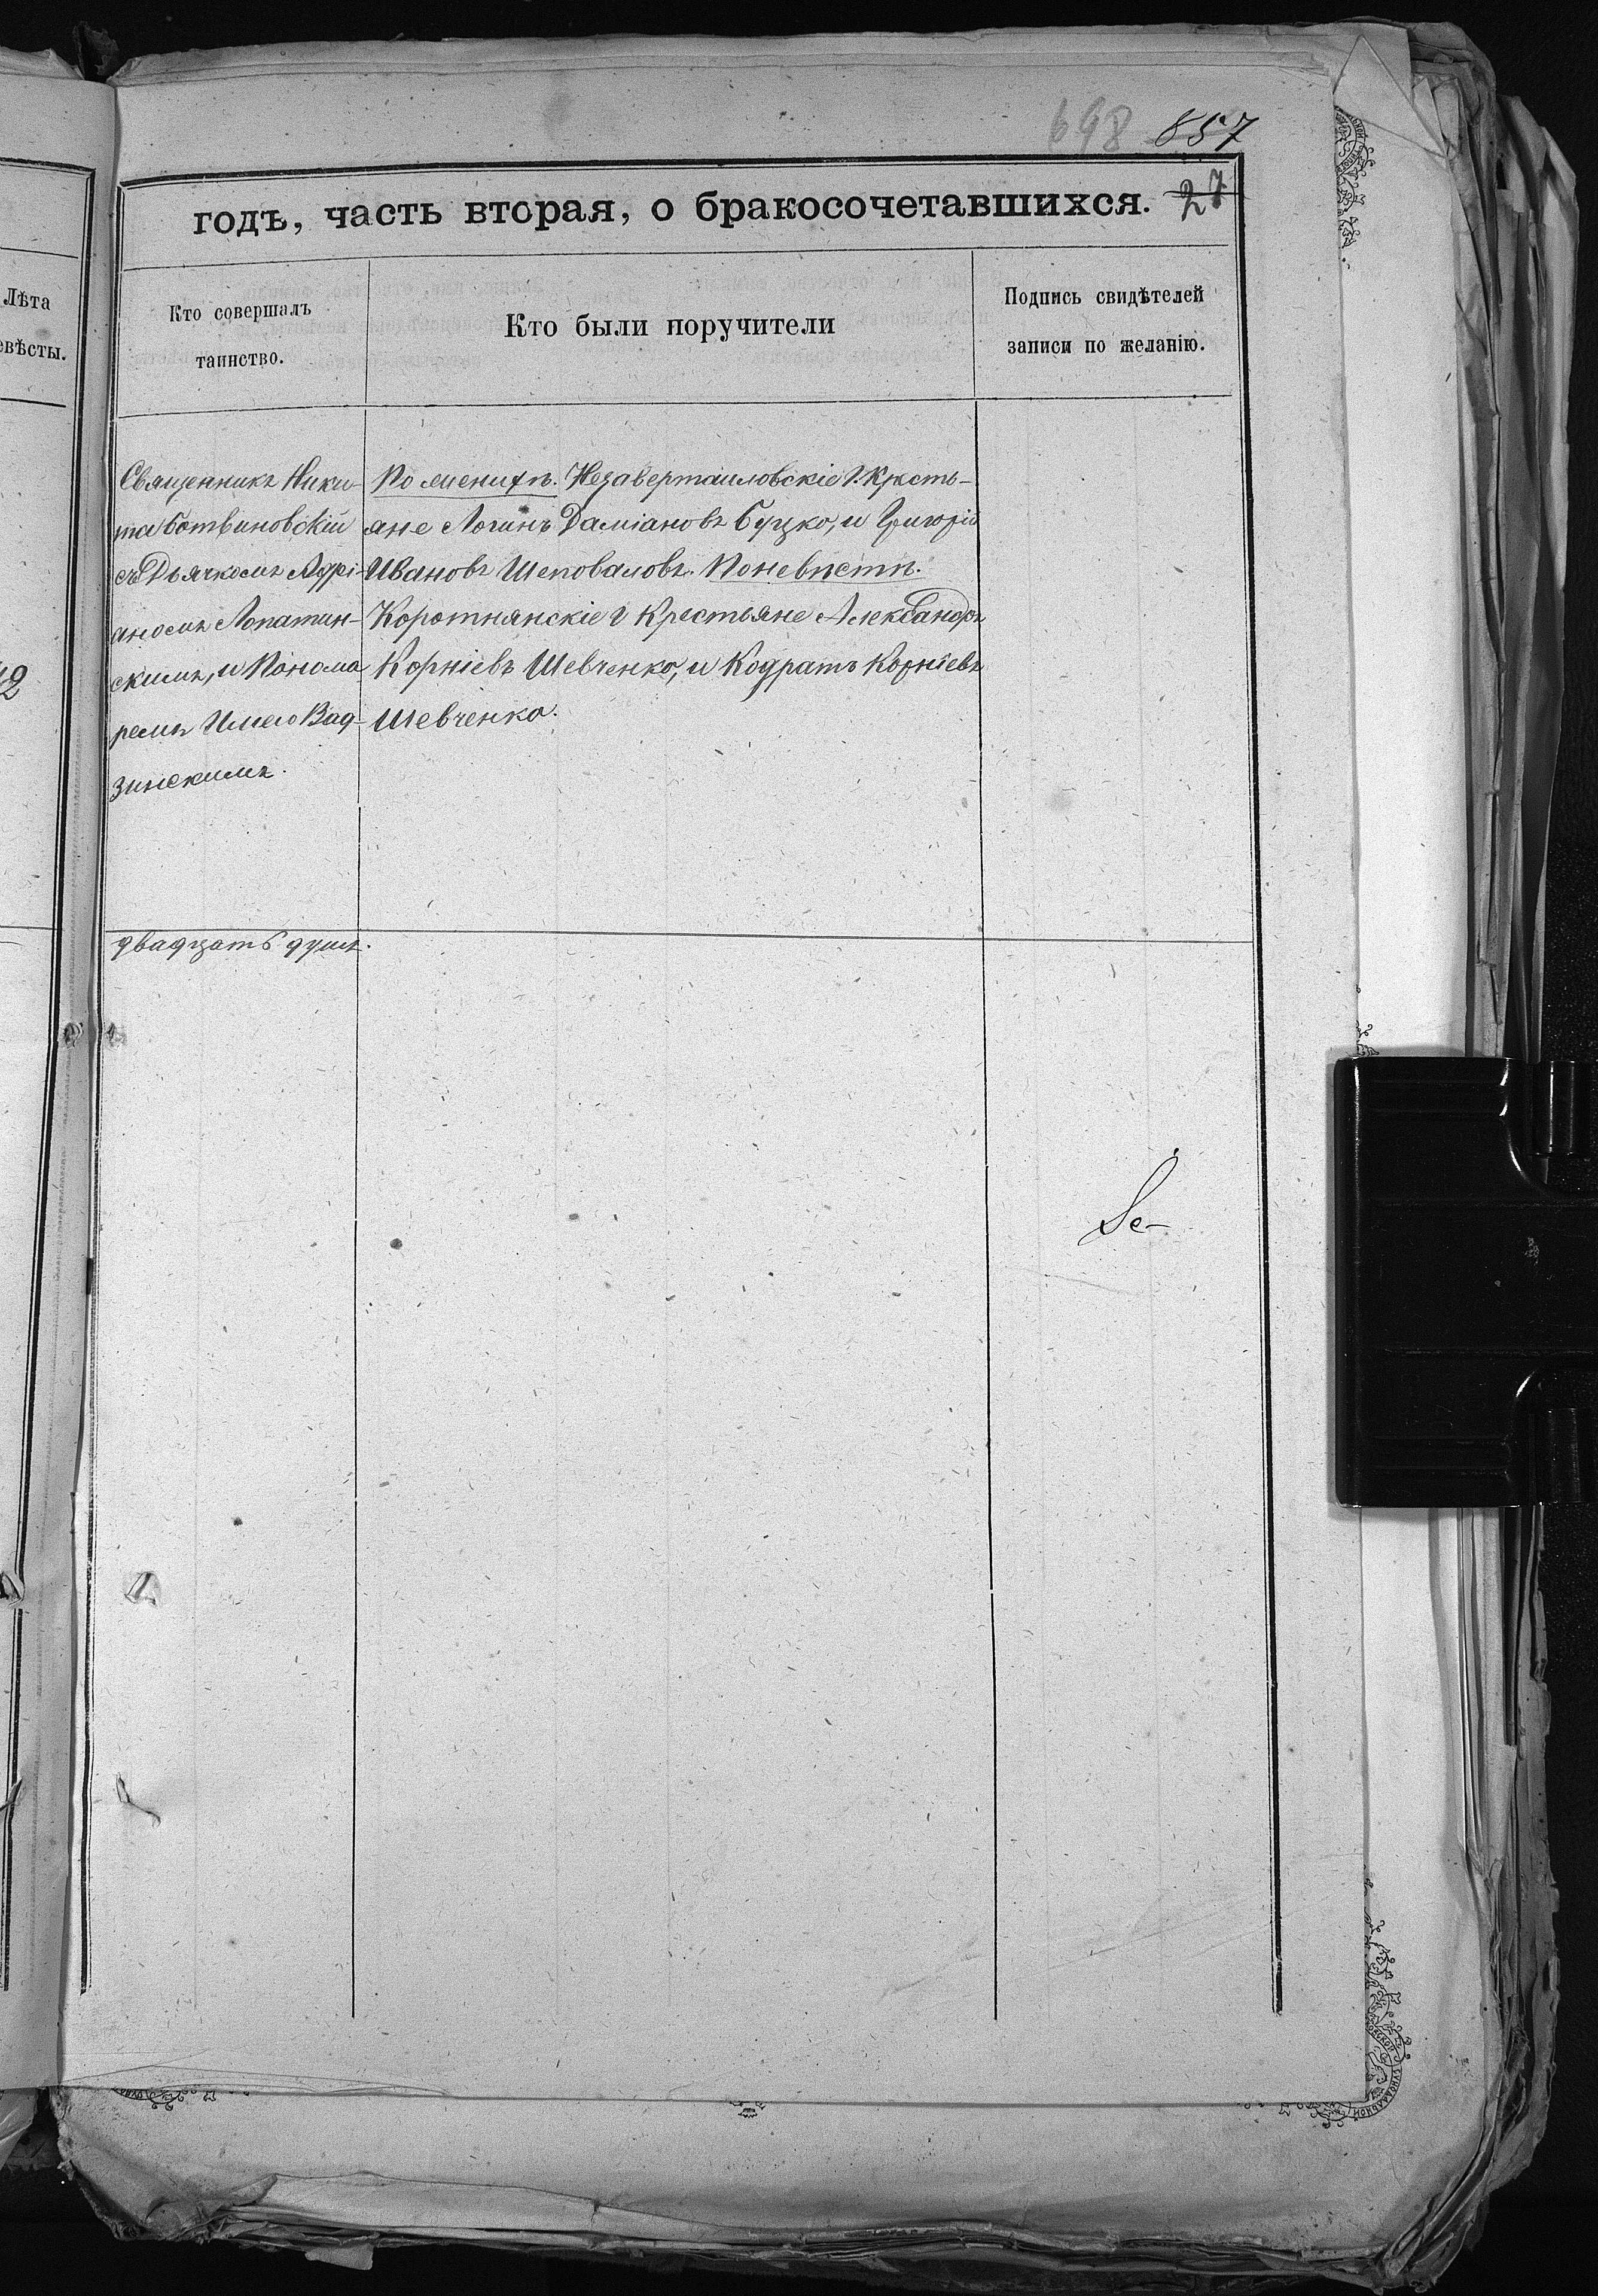 698 857
годъ, часть вторая, о бракосочетавшихся. 27
Лѣта
евѣсты.
Кто совершалъ
таинство.
Кто были поручители
Подпись свидѣтелей
записи по желанію.
42
Священникъ Ники-
та Ботвиновскій
съ Дьячкомъ Адрі-
аномъ Лопатин-
скимъ, и Понома
ремъ Ильею Вад-
зинскимъ.
По женихѣ. Незавертаиловскіе 2. Кресть-
яне Логинъ Даміановъ Буцко, и Григорій
Ивановъ Шеповаловъ. Поневѣстѣ.
Коротнянскіе 2 Крестьяне Александръ
Корніевъ Шевченко, и Кодратъ Корніевъ
Шевченко.
двадцать душъ.